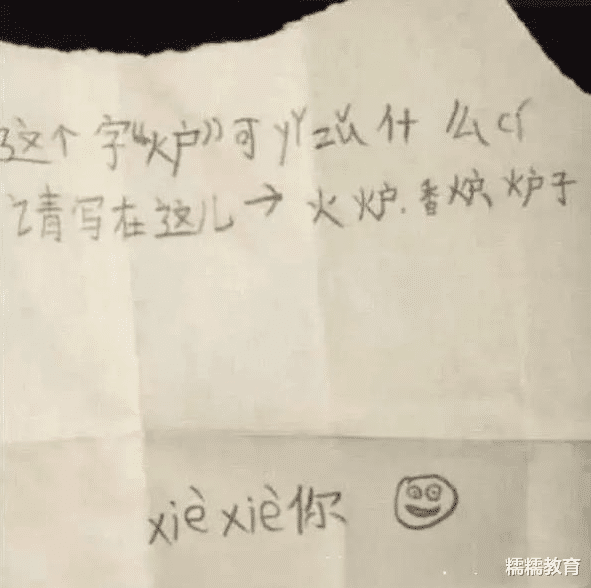 这个字“炉”可yǐ zǔ什么cí
请写在这儿→火炉、香炉、炉子
xiè xiè你
糯糯教育